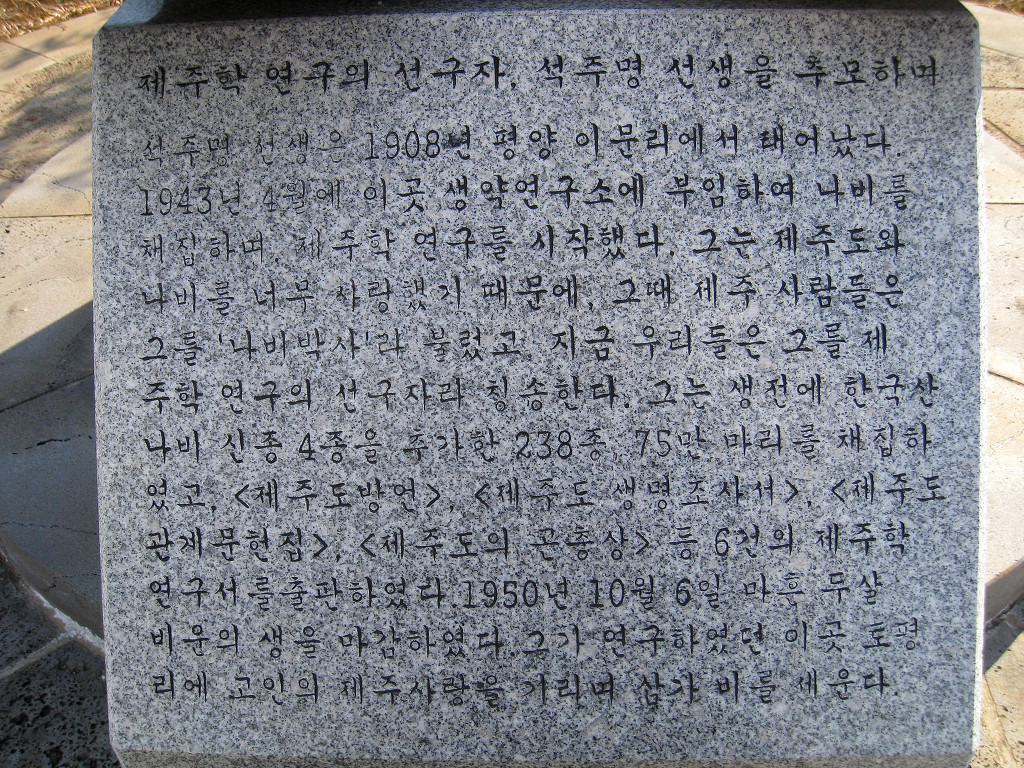 제주학 연구의 선구자, 석주명 선생을 추모하며
석주명 선생은 1908년 평양 이문리에서 태어났다.
1943년 4월에 이곳 생약연구소에 부임하여 나비를
채집하며, 제주학 연구를 시작했다. 그는 제주도와
나비를 너무 사랑했기 때문에, 그때 제주 사람들은
그를 '나비박사'라 불렀고, 지금 우리들은 그를 제
주학 연구의 선구자라 칭송한다. 그는 생전에 한국산
나비 신종 4종을 추가한 238종, 75만 마리를 채집하
였고, <제주도방언>, <제주도 생명조사서>, <제주도
관계문헌집>, <제주도의 곤충상> 등 6건의 제주학
연구서를 출판하였다. 1950년 10월 6일 마흔 두살
비운의 생을 마감하였다. 그가 연구하였던 이곳 토평
리에 고인의 제주사랑을 기리며 삼가 비를 세운다.